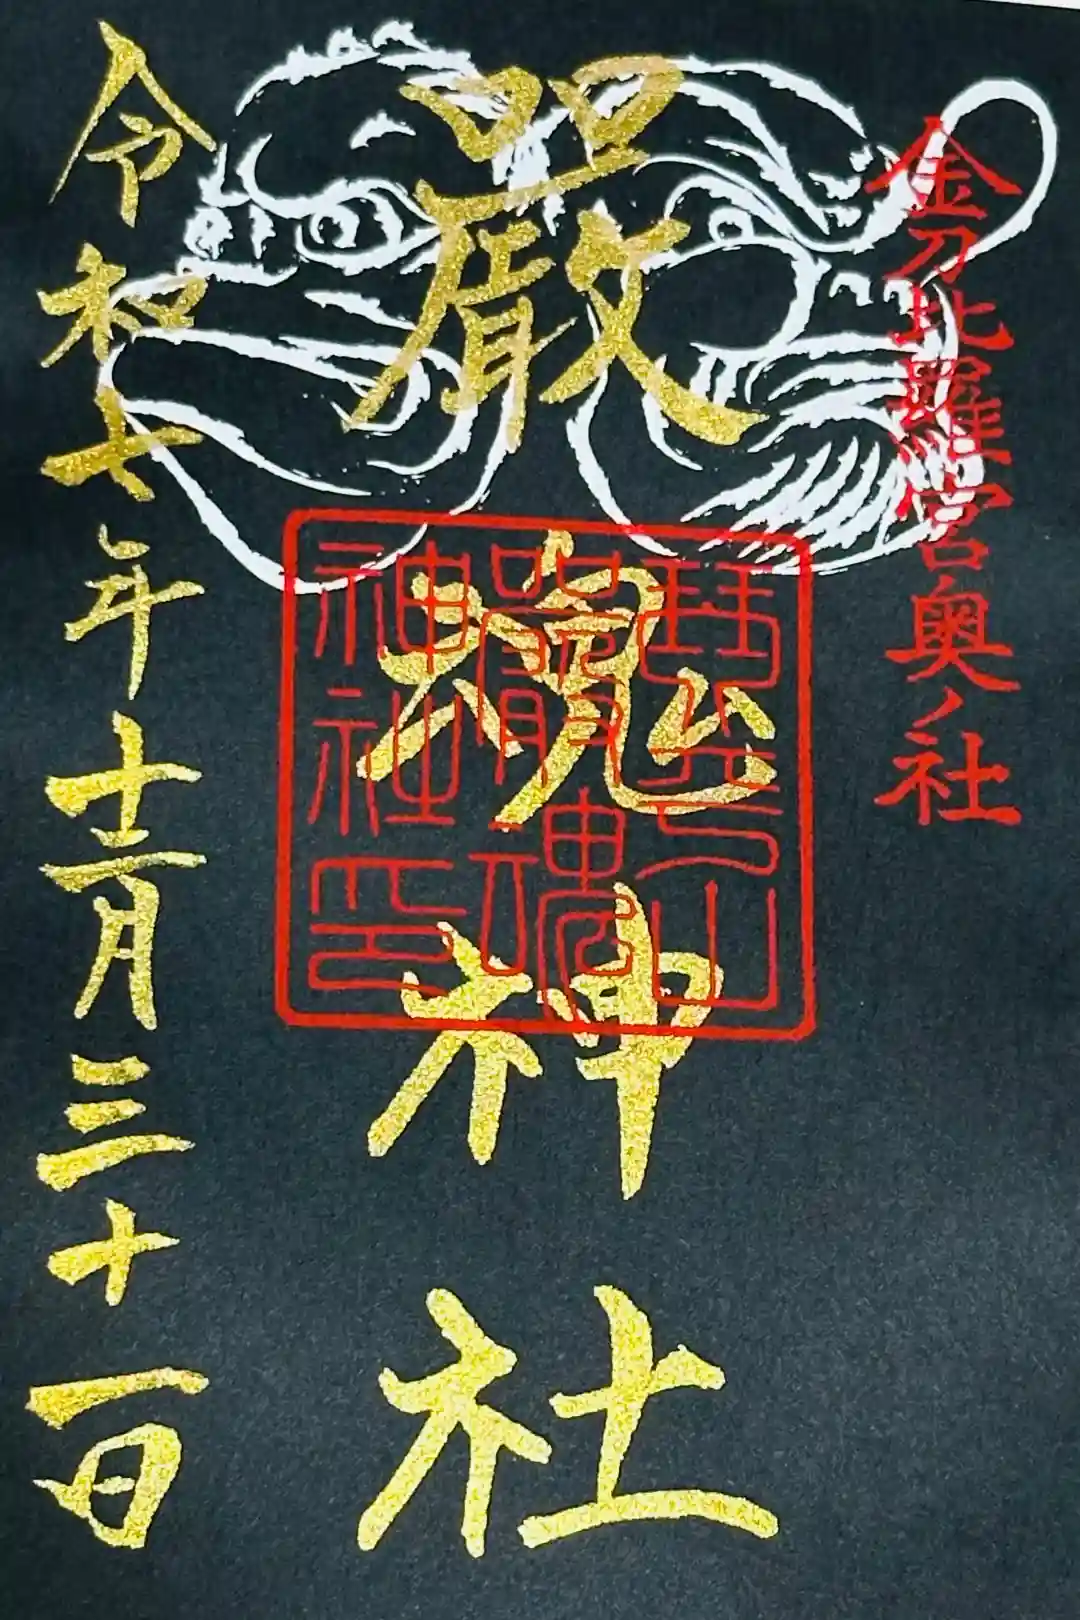 金刀比羅宮奥ノ社
嚴魂神社
琴平山
嚴魂
神社印
令和七年十二月三十一日